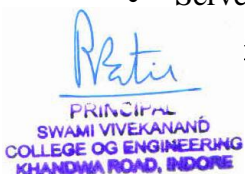 Serve
RPatil
PRINCIPAL
SWAMI VIVEKANAND
COLLEGE OG ENGINEERING
KHANDWA ROAD, INDORE